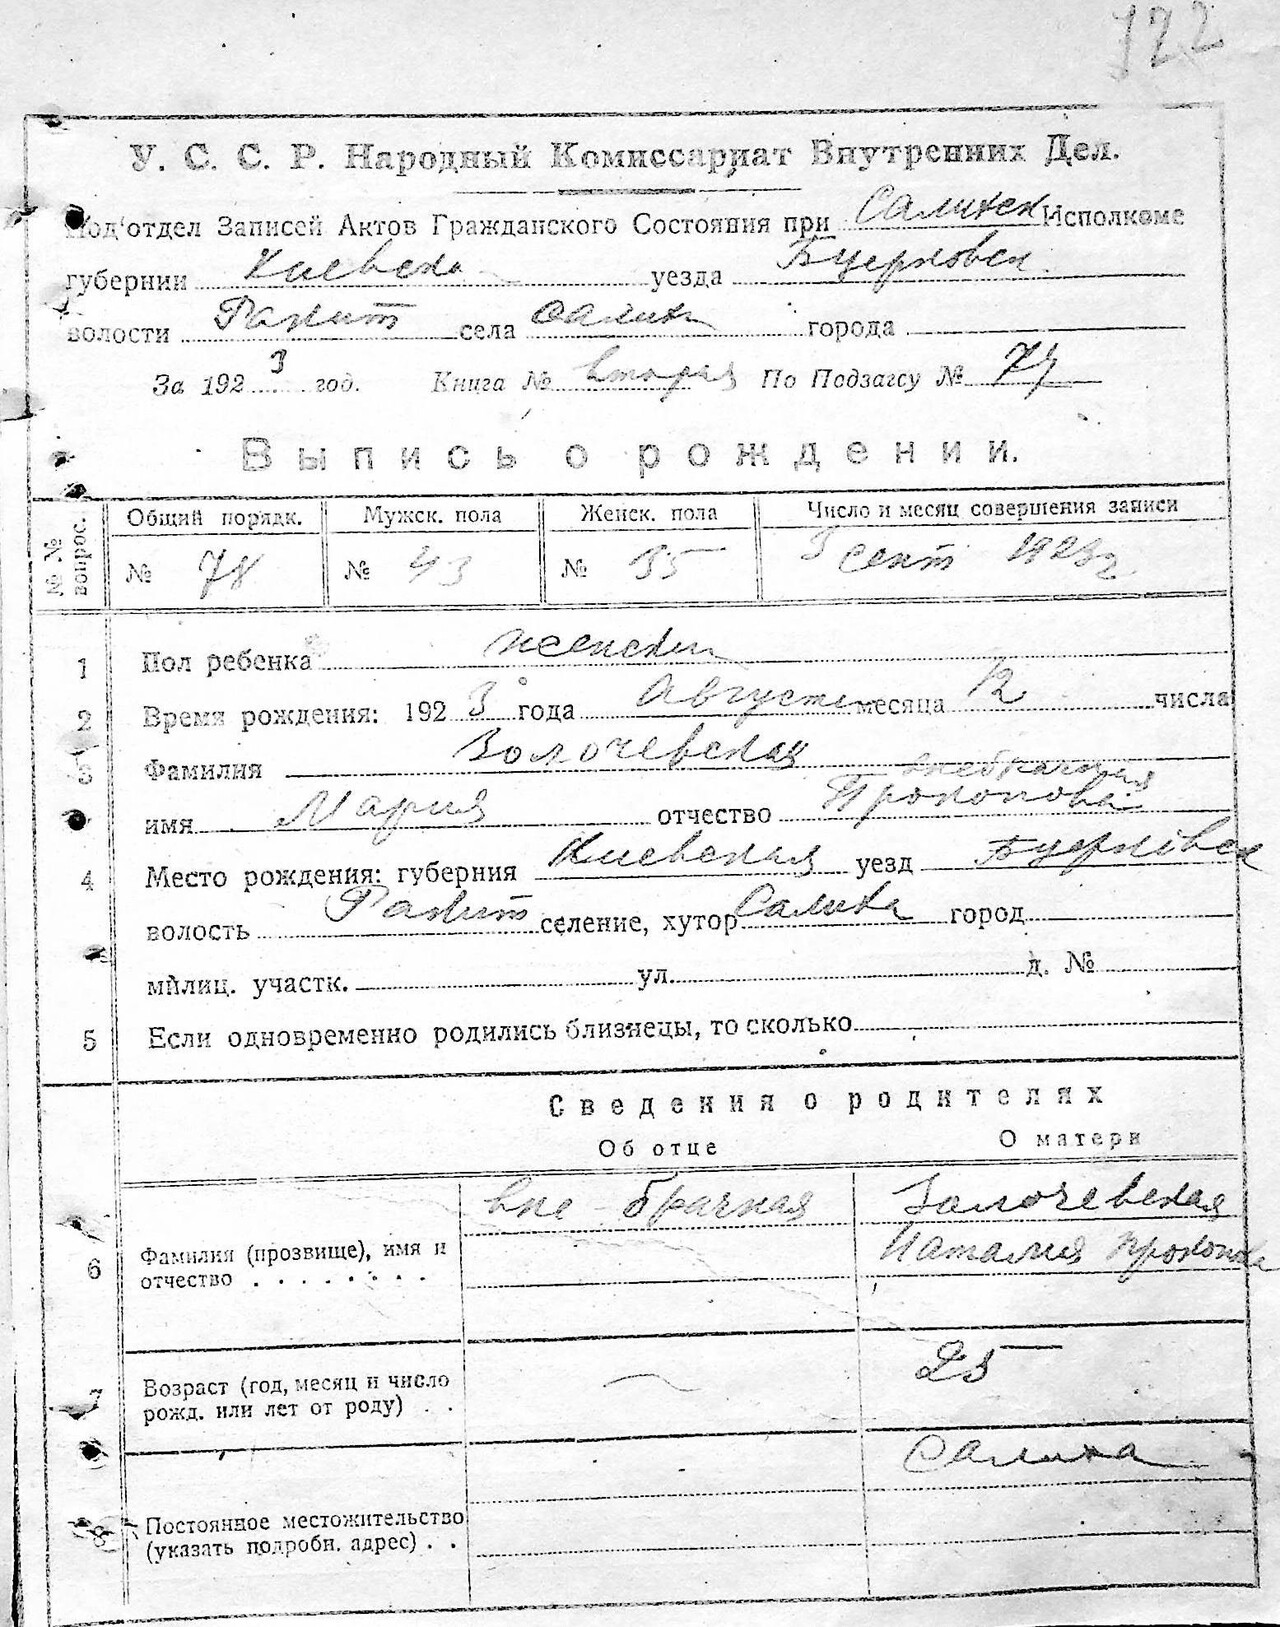 122
У. С. С. Р. Народный Комиссариат Внутренних Дел.
Под'отдел Записей Актов Гражданского Состояния при Салихск Исполкоме
губернии Киевска уезда Бцерковск
волости Ракит села Салиха города
За 1923 год. Книга № вторая По Подзагсу №
Выпись о рождении.
№ № вопрос. Общий порядк. Мужск. пола Женск. пола Число и месяц совершения записи
№ 78 № 43 № 35 сент 1923г
1 Пол ребенка женский
2 Время рождения: 1923 года Августа месяца 12 числа
3 Фамилия Золочевская
внебрачная
имя Мария отчество Прокопова
4 Место рождения: губерния Киевская уезд Бцерковск
волость Ракит селение, хутор Салиха город
милиц. участк. ул. д. №
5 Если одновременно родились близнецы, то сколько
Сведения о родителях
Об отце О матери
6 Фамилия (прозвище), имя и отчество . . . . . . . . вне-брачная Золочевская
Наталия Прокопова
7 Возраст (год, месяц и число рожд. или лет от роду) . . 25
8 Постоянное местожительство (указать подробн. адрес) . . Салиха